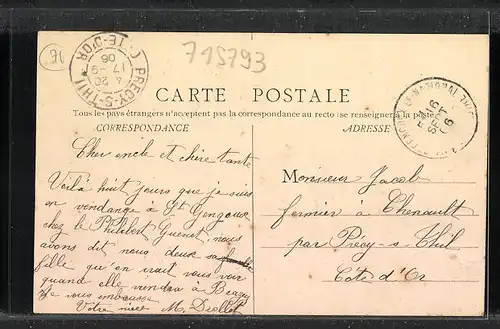 21
715793
PRECY-S-THIL
CÔTE-D'OR
17 -9
06
CARTE POSTALE
Tous les pays étrangers n'acceptent pas la correspondance au recto (se renseigner à la poste)
CORRESPONDANCE
ADRESSE
16
SEPT
06
Cher oncle et chère tante
Voilà huit jours que je suis
en vendange à St Gengoux
chez le Philibert Guenot, nous
avons dit nous deux sa
fille qu'on irait vous voir
quand elle viendra à
Je vous embrasse
Votre nièce M. Diollot
Monsieur Jacob
fermier à Chenault
par Précy-s Thil
Côte d'Or